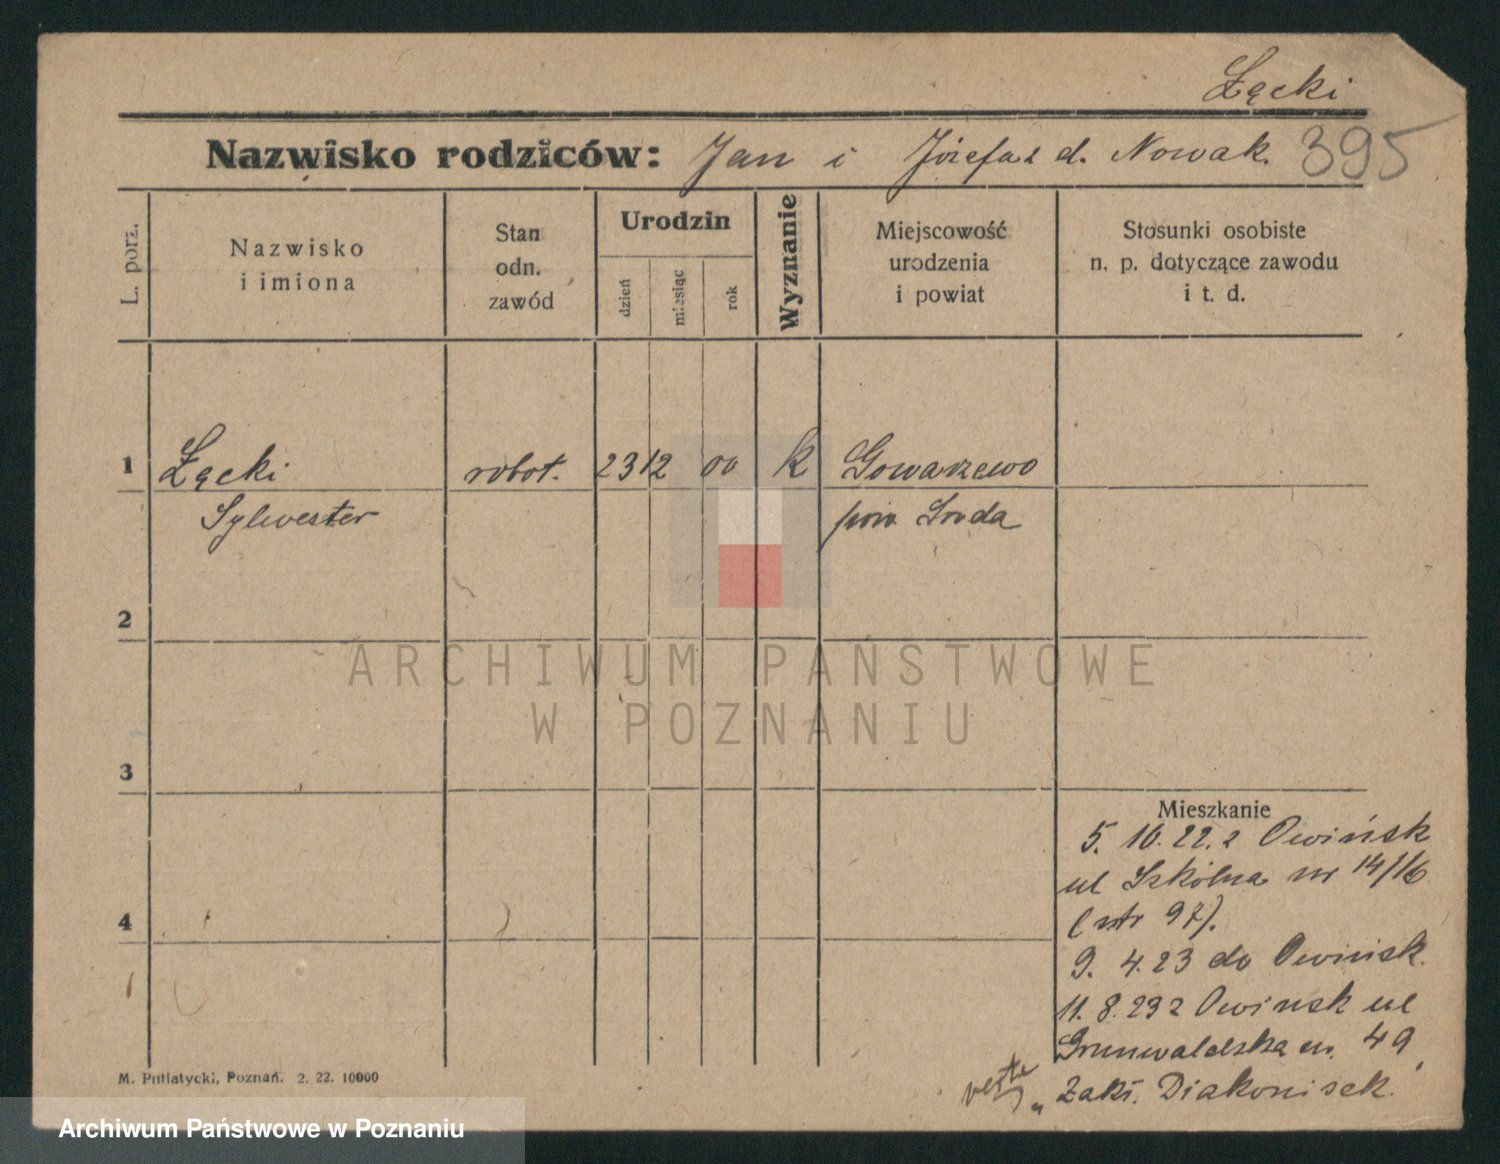 Łącki
Nazwisko rodziców: Jan i Józefa z d. Nowak. 395
L. porz.
Nazwisko
i imiona
Stan
odn.
zawód
Urodzin
dzień
miesiąc
rok
Wyznanie
Miejscowość
urodzenia
i powiat
Stosunki osobiste
n. p. dotyczące zawodu
i t. d.
1 Łącki robot. 23 12 00 k Gowarzewo
Sylwester pow Sroda
2
3
4
ARCHIWUM PAŃSTWOWE
W POZNANIU
Mieszkanie
5. 10. 22. z Owińsk
ul Szkolna nr 14/16
(str 97).
9. 4. 23 do Owińsk.
11. 8. 23 z Owinsk ul
Grunwaldzka nr. 49
„ Zakł. Diakonisek.
verte
M. Putiatycki, Poznań. 2. 22. 10000
Archiwum Państwowe w Poznaniu